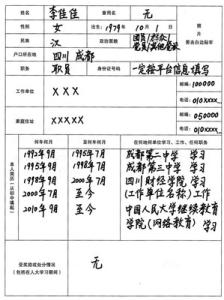 姓名 李佳佳 曾用名 无
性别 女 出生 1979年10月1日
民族 汉 政治面貌 团员/群众/党员/其他党派
照片
户口所在地 四川 成都
职务 职员 身份证号码 一定按平台信息填写
工作单位 XXX 邮编:100000
电话 010XXXX
家庭住址 XXXXX 邮编:050000
电话 010XXXX
本人简历(从初中填起)
何年何月 至何年何月 在何地何单位学习、工作、任何职务
1992年9月 1995年7月 成都第二中学 学习
1995年9月 1998年7月 成都第三中学 学习
1998年9月 2000年7月 四川财经学院 学习
2000年7月 至今 (工作单位名称)工作
2010年9月 至今 中国人民大学继续教育学院(网络教育)学习
受奖励或处分情况(包括在人大学习期间)
无